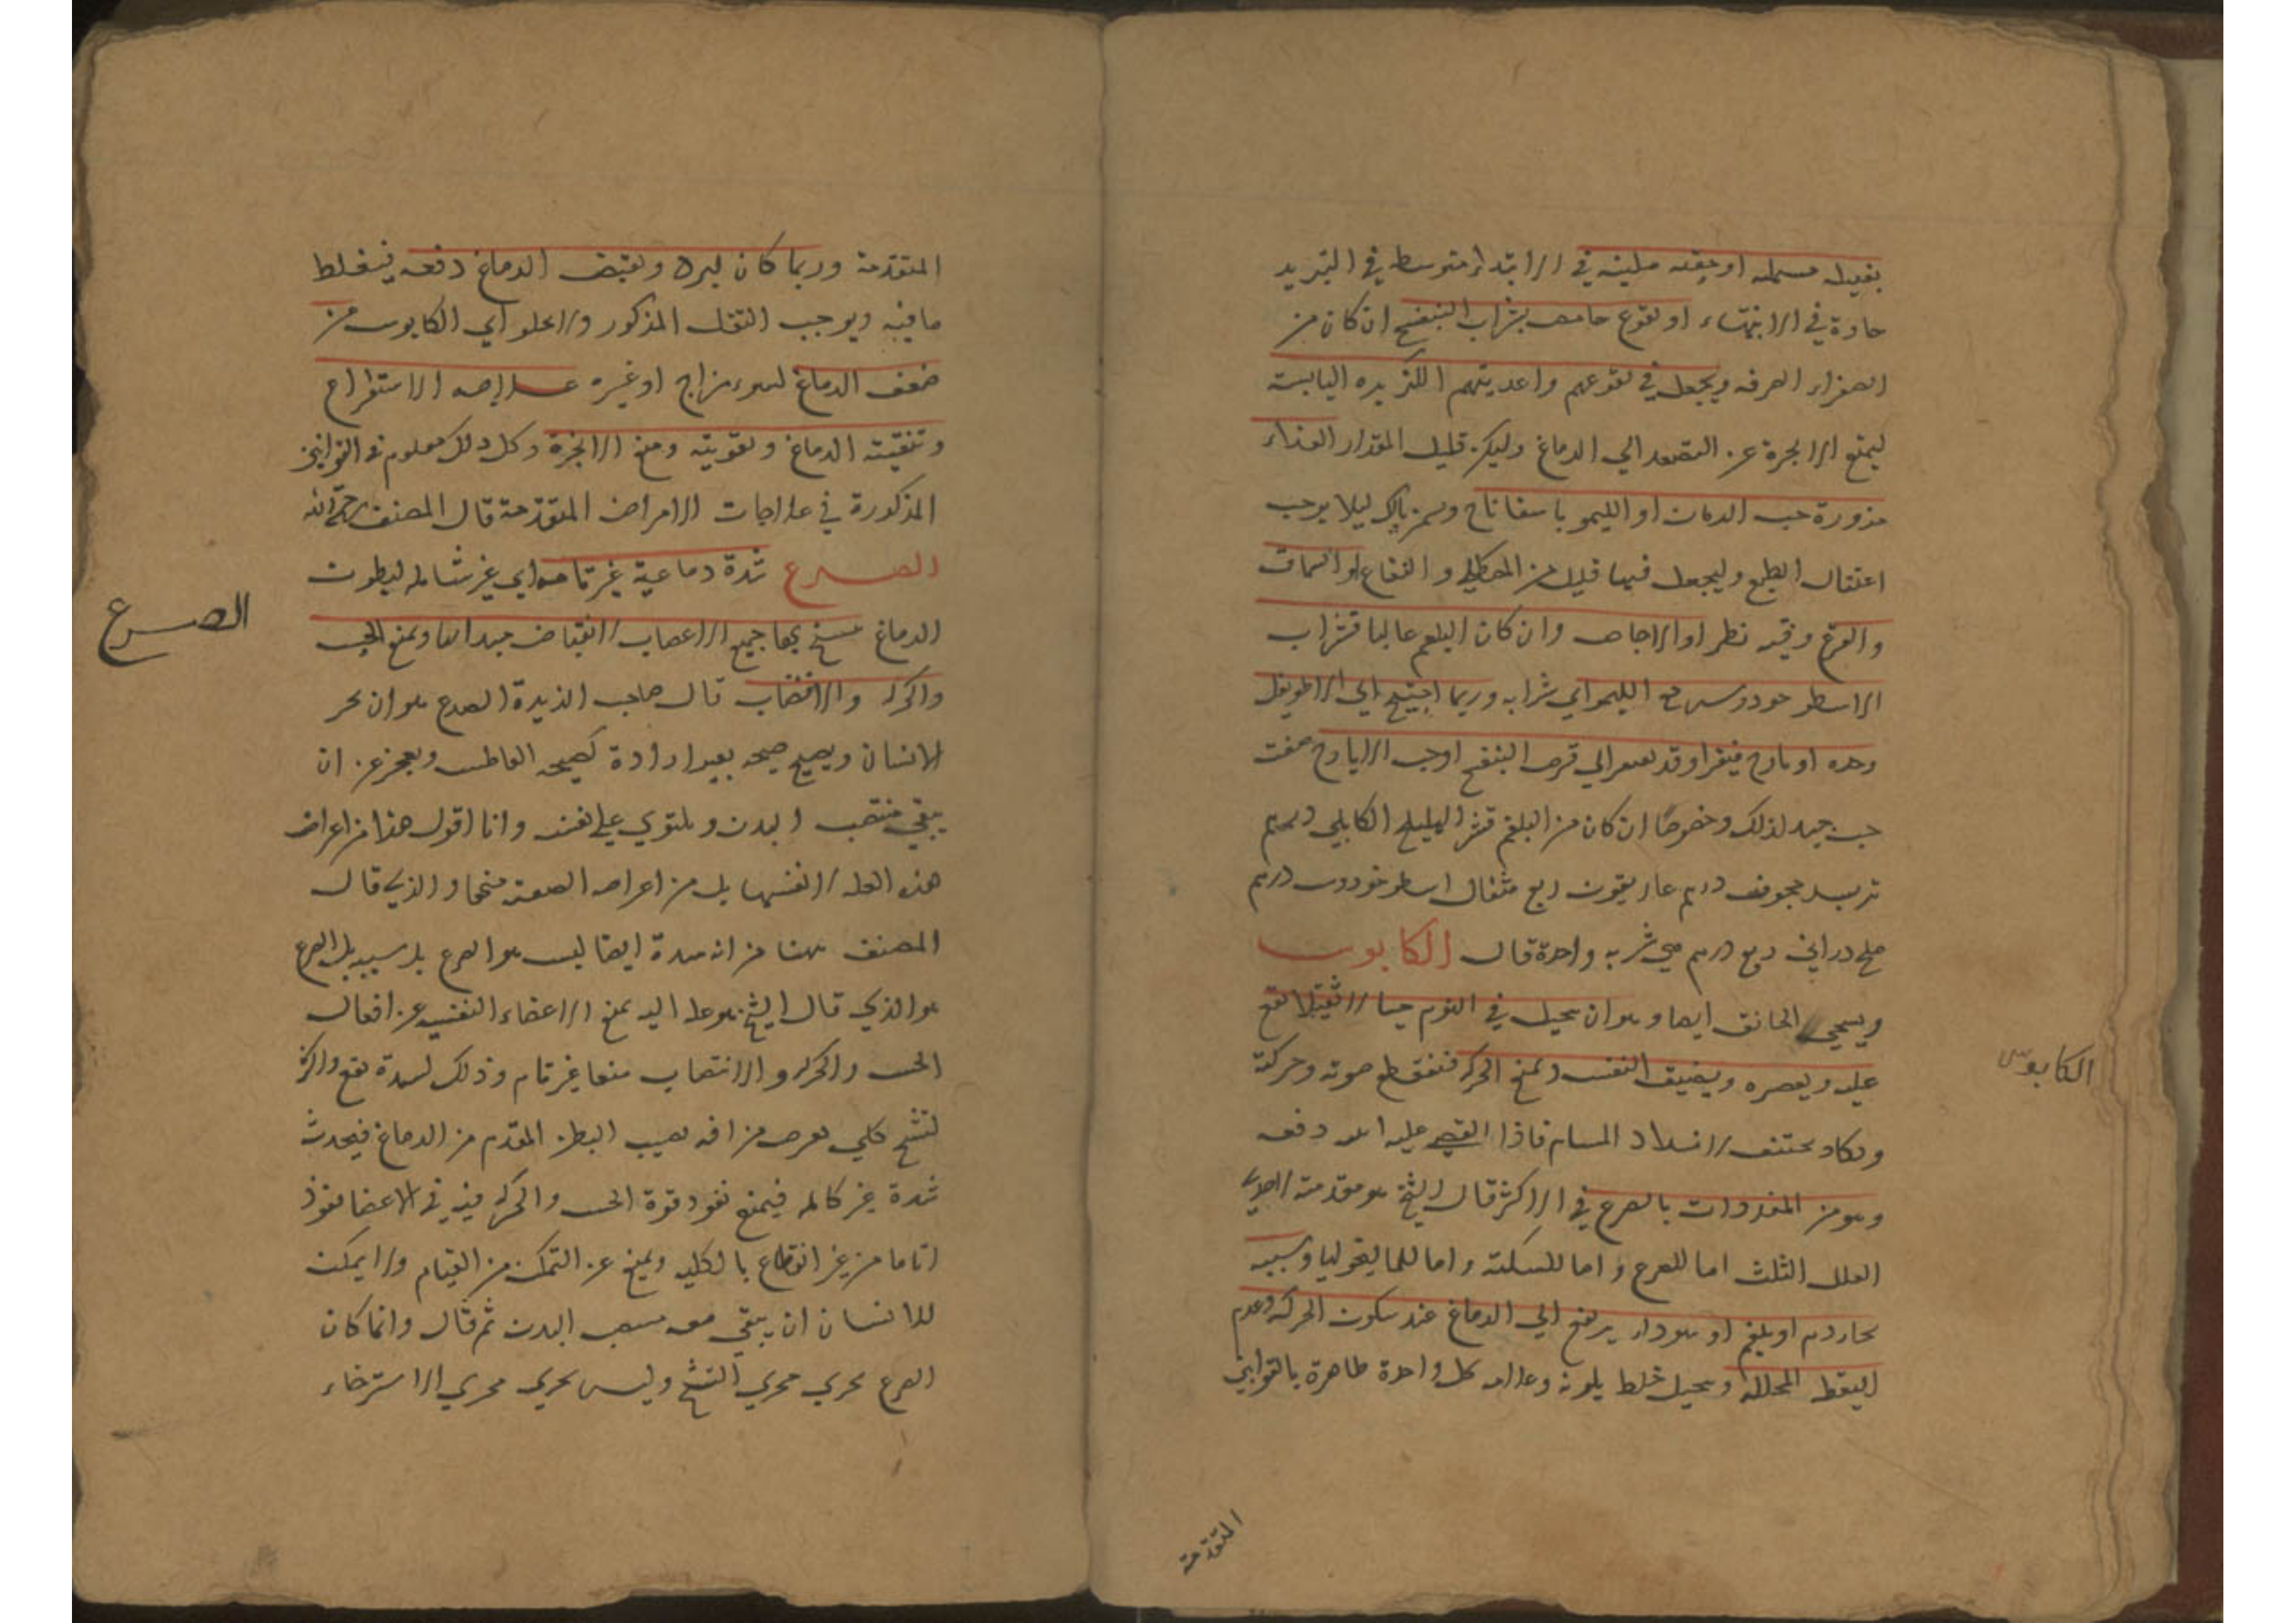 بفتيله مسهله او حقنه ملينه في الابتداء متوسطه في التبريد
حادة في الانتهاء او نقوع حامض بشراب البنفسج ان كان من
الصفراء الصرفه ويجعل في نقوعهم واغديتهم الكزبره اليابسة
ليمنع الابخرة عن التصعد الي الدماغ وليكن قليل المقدار الغذاء
مزورة حب الرمان او الليمو باسفاناخ ليلا يوجب
اعتقال الطبع وليجعل فيها قليل من او السماق
والقرع وفيه نظر او الاجاص وان كان البلغم غالبا فشراب
الاسطوخودوس مع الليمو اي شرابه وربما احتيج الي الاطريفل
وحده او يارج فيقرا وقد الي قرص البنفسج او حب الايارج صفت
حب جيد لذلك وخصوصًا ان كان من البلغم قشر الهليلج الكابلي درهم
تربد مجوف درهم غاريقون ربع مثقال اسطوخودوس درهم
ملح دراني ربع درهم هي شربه واحدة قال الكابوس
ويسمي الخانق ايضا وهو ان يتخيل في النوم خيالا ثقيلا يقع
عليه ويعصره ويضيق النفس ويمنع الحركه فينقطع صوته وحركته
ويكاد يختنق لانسداد المسام فاذا عليه دفعه
وهو من المنذرات بالصرع في الاكثر قال الشيخ هو مقدمة لاحدي
العلل الثلث اما للصرع و اما للسكتة واما للماليخوليا وسببه
بخار دم او بلغم او سوداء يرتفع الي الدماغ عند سكون الحركه وعدم
اليقظه المحلله ويتخيل خلط بلونه كل واحدة ظاهرة بالقوانين
المتقدمة
الكابوس
المتقدمة وربما كان لبرد ويقبض الدماغ دفعه فيغلظ
ما فيه ويوجب الثقل المذكور ولا يخلو اي الكابوس من
ضعف الدماغ لسوء مزاج او غيره علاجه الاستفراغ
وتنقية الدماغ وتقويته ومنع الابخرة وكل ذلك معلوم في القوانين
المذكورة في علاجات الامراض المتقدمة قال المصنف رحمه الله
الصرع سدة دماغية غير تامه اي غير شامله لبطون
الدماغ يتشنج بها جميع الاعصاب لانقباض مبداها ويمنع الحس
والحركه والانتصاب قال صاحب الذخيرة الصرع هو ان يخر
الانسان ويصيح صيحه بغير ارادة كصيحه العاطس ويعجز عن ان
يبقي منتصب البدن ويلتوي علي نفسه وانا اقول هذا من اعراض
هذه العله لا نفسها بل من اعراض الصعبة منها والذي قال
المصنف ههنا من انه سدة ايضا ليس هو الصرع بل سببه بل الصرع
هو الذي قال الشيخ هو علة اليه يمنع الاعضاء النفسيه عن افعال
الحس والحركه والانتصاب منعا غير تام وذلك لسدة تقع واكثره
لتشنج كلي يعرض من افه تصيب البطن المقدم من الدماغ فيحدث
سدة غير كامله فيمنع نفود قوة الحس والحركه فيه في الاعضا نفوذ
اتاما من غير انقطاع بالكليه ويمنع عن التمكن من القيام ولا يمكن
للانسان ان يبقي معه منتصب البدن ثم قال وانما كان
الصرع يجري مجري التشنج وليس يجري مجري الاسترخاء
الصرع